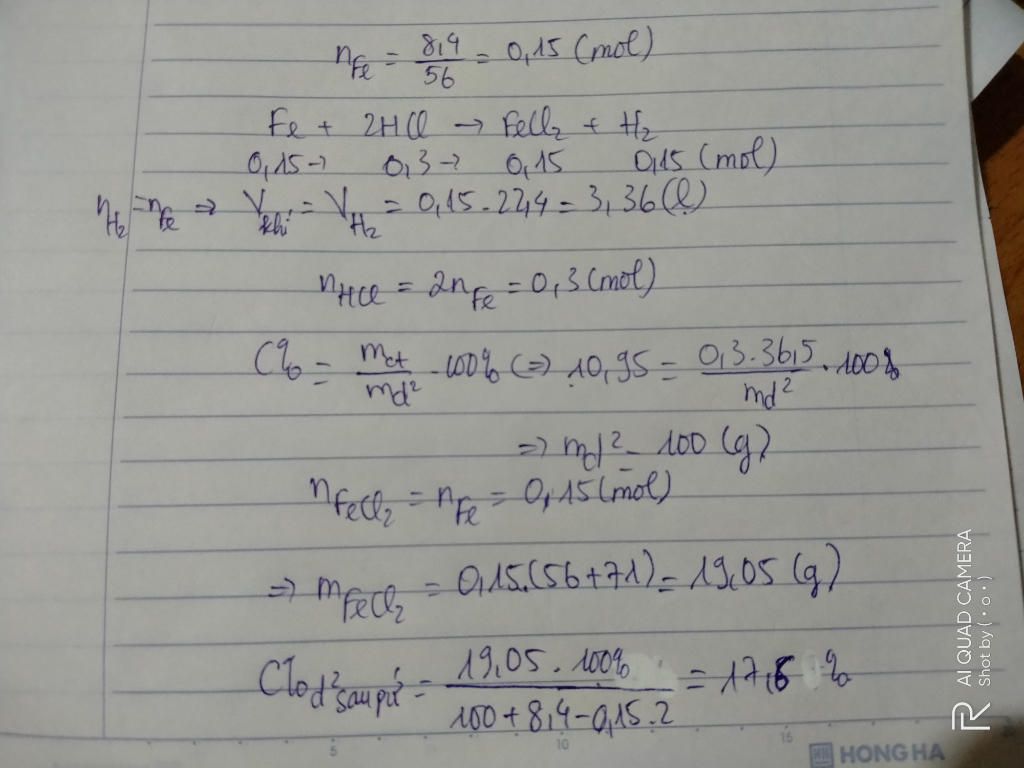 nFe = 8,4/56 = 0,15 (mol)
Fe + 2HCl → FeCl2 + H2
0,15→ 0,3→ 0,15 0,15 (mol)
nH2 = nFe ⇒ Vkhí = VH2 = 0,15.22,4 = 3,36 (l)
nHCl = 2nFe = 0,3 (mol)
C% = mct/md² .100% (⇒) 10,95 = 0,3.36,5/md² .100%
⇒ md² = 100 (g)
nFeCl2 = nFe = 0,15 (mol)
⇒ mFeCl2 = 0,15.(56+71) = 19,05 (g)
C% d² sau pứ = 19,05 . 100%/100 + 8,4 - 0,15.2 = 17,6 %
AI QUAD CAMERA
Shot by (・o・)
5 10 15
HONG HA